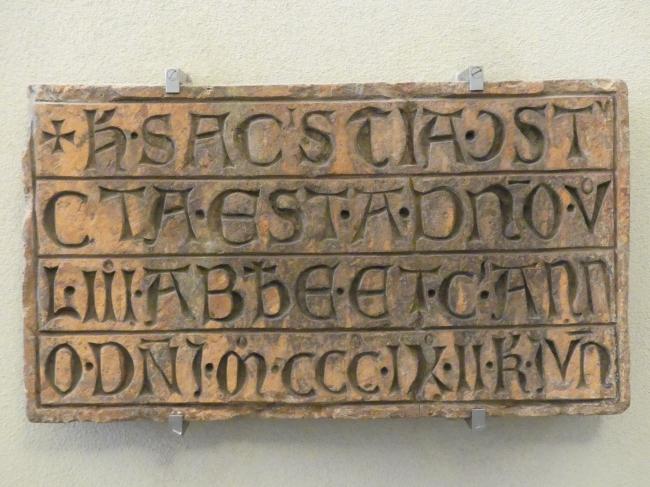 ✠ H̄·SAC'STIA·ↃSTᵛ
CTA·EST·A·DN̄O·Vº
L·IIII·ABB̄E·ET·C'·ANN
O·DN̄I·Mº·CCC·IX·II·K̄·IVN̄